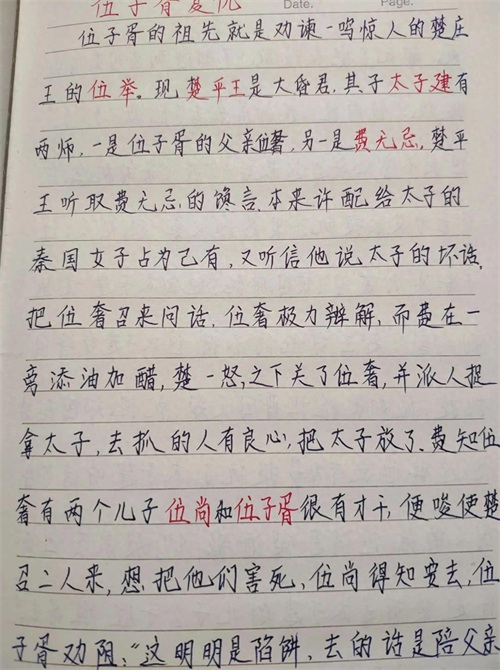 伍子胥复仇
Date. Page.
伍子胥的祖先就是劝谏一鸣惊人的楚庄
王的伍举。现楚平王是大昏君,其子太子建有
两师,一是伍子胥的父亲伍奢,另一是费无忌,楚平
王听取费无忌的馋言、本来许配给太子的
秦国女子占为己有,又听信他说太子的坏话,
把伍奢召来问话,伍奢极力辩解,而费在一
旁添油加醋,楚一怒之下关了伍奢,并派人捉
拿太子,去抓的人有良心,把太子放了。费知伍
奢有两个儿子伍尚和伍子胥很有才干,便唆使楚
召二人来,想把他们害死,伍尚得知要去,伍
子胥劝阻:“这明明是陷阱,去的话是陪父亲